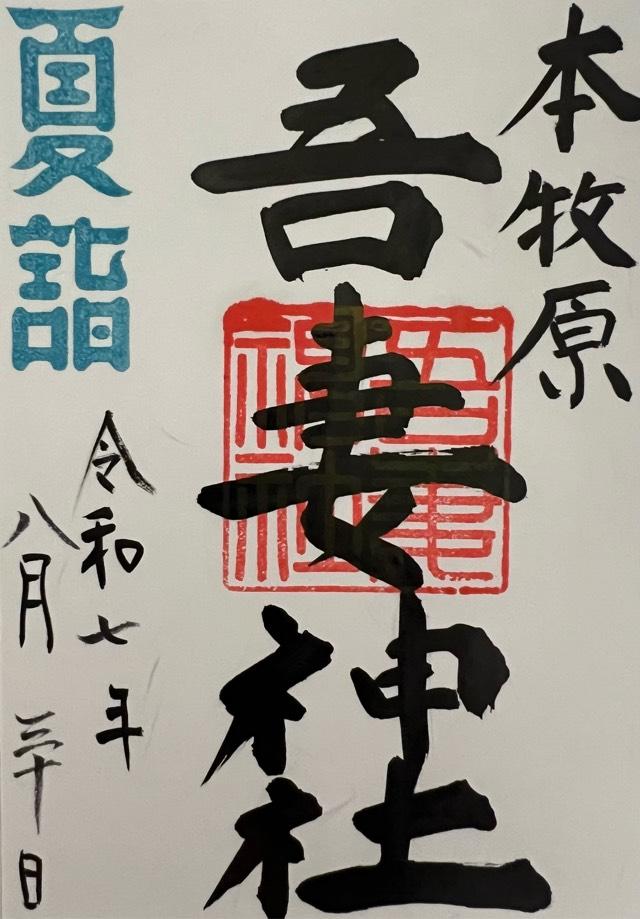 本牧原
吾妻神社
吾妻
神社
夏詣
令和七年
八月三十日